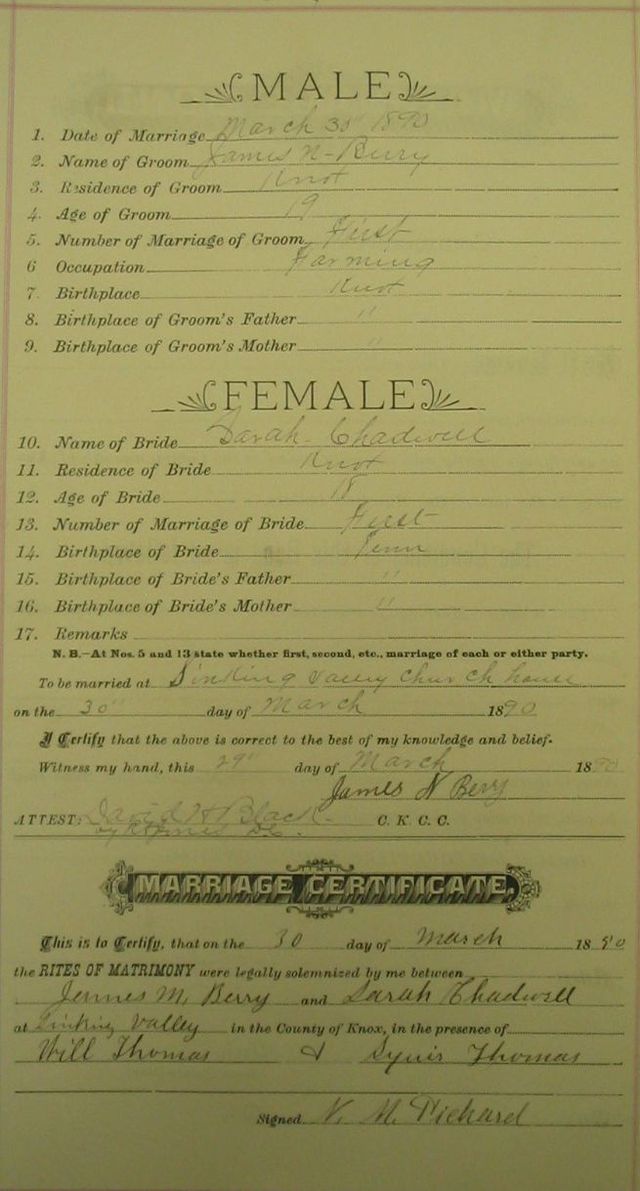 MALE
1. Date of Marriage March 30" 1890
2. Name of Groom James N. Berry
3. Residence of Groom Knox
4. Age of Groom 19
5. Number of Marriage of Groom First
6 Occupation Farming
7 Birthplace Knox
8. Birthplace of Groom's Father "
9. Birthplace of Groom's Mother "
FEMALE
10. Name of Bride Sarah Chadwell
11. Residence of Bride Knox
12. Age of Bride 18
13. Number of Marriage of Bride First
14. Birthplace of Bride Tenn
15. Birthplace of Bride's Father "
16. Birthplace of Bride's Mother "
17. Remarks
N. B.—At Nos. 5 and 13 state whether first, second, etc., marriage of each or either party.
To be married at Sinking Valley Church house
on the 30" day of March 1890
I Certify that the above is correct to the best of my knowledge and belief.
Witness my hand, this 29" day of March 1890
James N Berry
ATTEST: David H Black C. K. C. C.
by
MARRIAGE CERTIFICATE.
This is to Certify, that on the 30 day of March 1890
the RITES OF MATRIMONY were legally solemnized by me between
James M. Berry and Sarah Chadwell
at Sinking Valley in the County of Knox, in the presence of
Will Thomas & Thomas
Signed